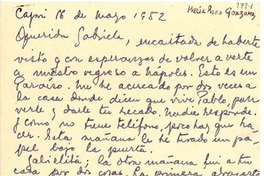 Capri 16 de mayo 1952
María Rosa González
Querida Gabriela, encantada de haberte
visto y con esperanzas de volver a verte
a nuestro regreso a Nápoles. Esto es un
Paraíso. Me he acercado por dos veces a
la casa donde dicen que vive Pablo, para
verle y darle tu recado. Nadie responde.
Como no tiene teléfono, pero hay que ha-
cer. Esta mañana le he tirado un pa-
pel bajo la puerta.
Gabielita: la otra mañana fui a tu
casa por dos cosas. La primera abrazarte